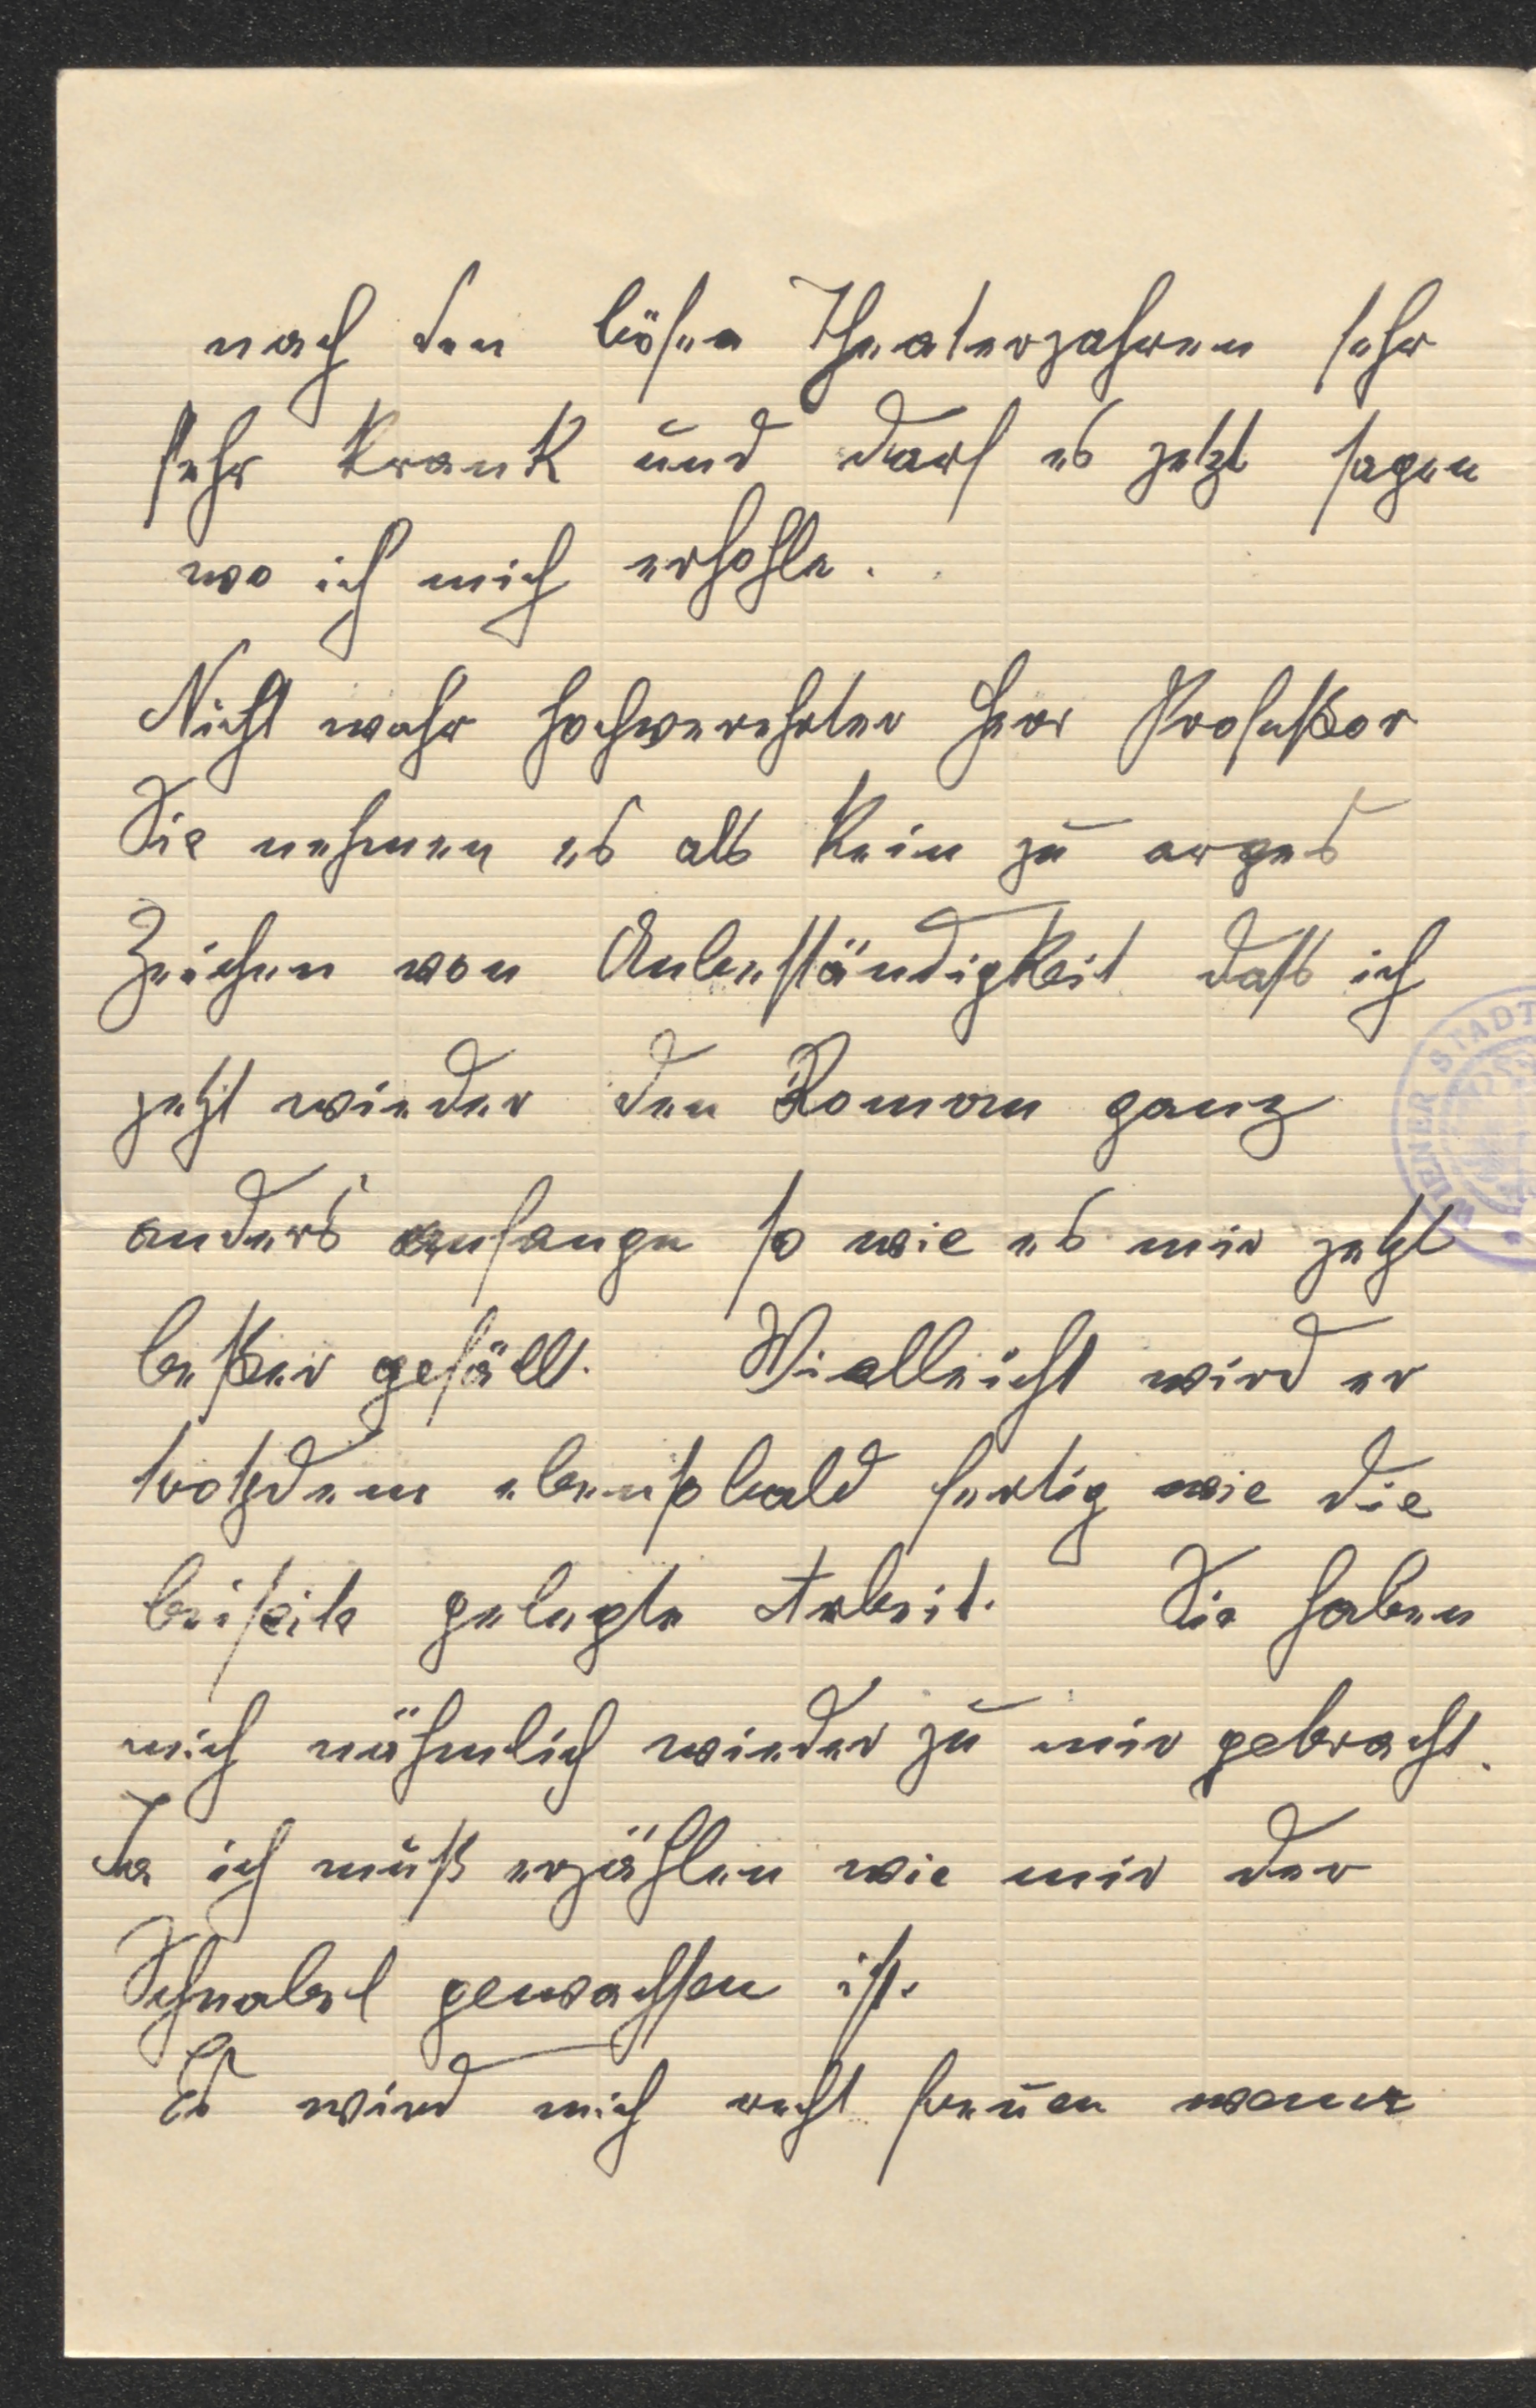 nach den bösen Theaterjahren sehr
sehr krank und darf es jetzt sagen
wo ich mich erhohle.
Nicht wahr hochverehrter Herr Profeßor
Sie nehmen es als kein zu arges
Zeichen von Unbeständigkeit daß ich
jetzt wieder den Roman ganz
anders anfange so wie es mir jetzt
beßer gefällt. Vielleicht wird er
trotzdem ebensobald fertig wie die
beiseite gelegte Arbeit. Sie haben
mich nähmlich wieder zu mir gebracht.
Ja ich muß erzählen wie mir der
Schnabel gewachsen ist.
Es wird mich recht freuen wenn
WIENER STADT